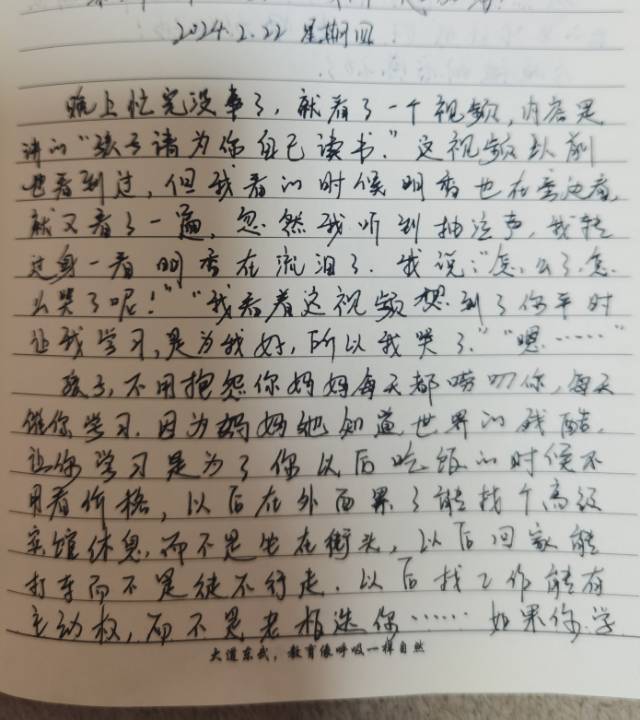 2024.2.22 星期四
晚上忙完没事了，就看了一个视频，内容是
讲的“孩子请为你自己读书.”这视频以前
也看到过，但我看的时候明香也在旁边看，
就又看了一遍，忽然我听到抽泣声，我转
过身一看明香在流泪了.我说：“怎么了，怎
么哭了呢！”“我看着这视频想到了你平时
让我学习，是为我好，所以我哭了.”“嗯……”
孩子，不用抱怨你妈妈每天都唠叨你，每天
催你学习.因为妈妈她知道世界的残酷.
让你学习是为了你以后吃饭的时候不
用看价格，以后在外面累了能找个高级
宾馆休息，而不是坐在街头，以后回家能
打车而不是徒不行走.以后找工作能有
主动权，而不是老板选你……如果你学
大道东武，教育像呼吸一样自然